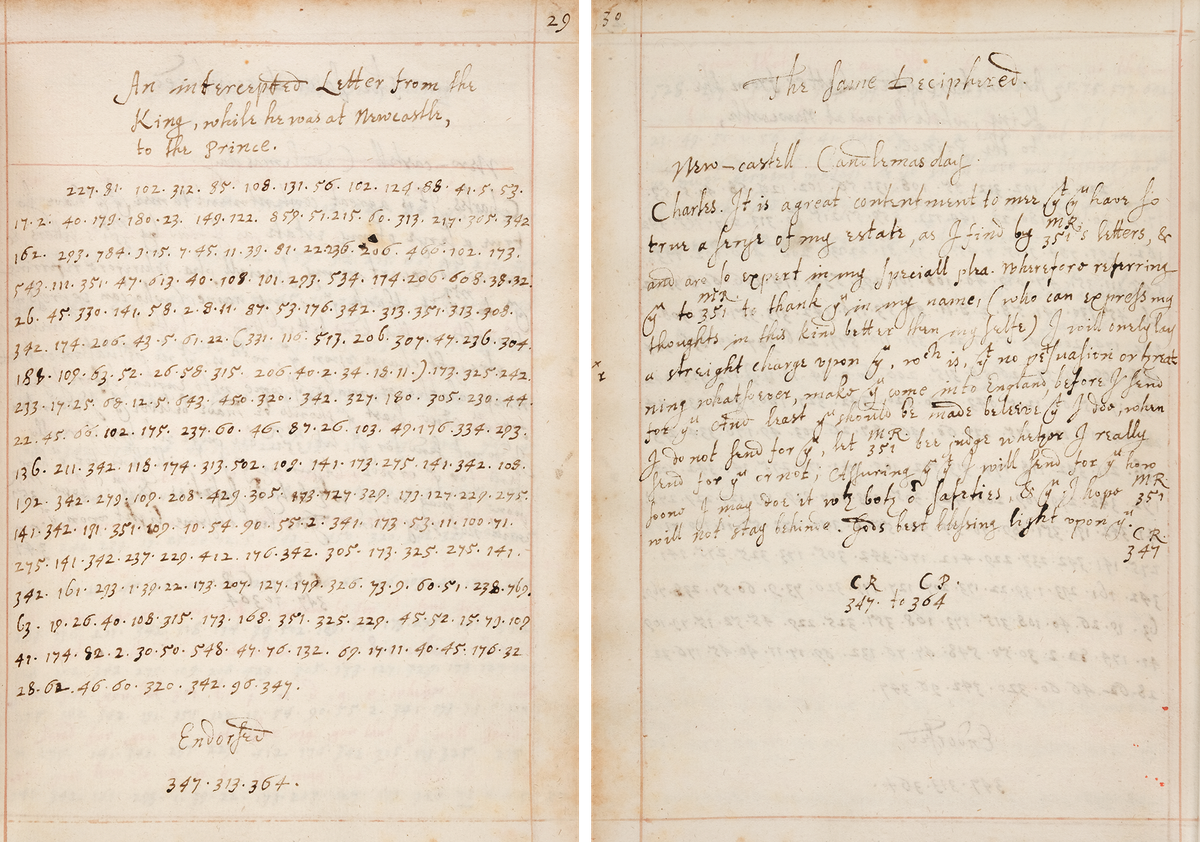 29
An intercepted Letter from the
King, while he was at Newcastle,
to the Prince.
227. 81. 102. 312. 85. 108. 131. 56. 102. 124. 88. 41. 5. 53.
17. 2. 40. 179. 180. 23. 149. 122. 859. 51. 215. 60. 313. 217. 305. 342
162. 293. 784. 9. 15. 7. 45. 11. 39. 81. 22. 236. 206. 460. 102. 173.
543. 111. 351. 47. 613. 40. 108. 101. 293. 534. 174. 206. 608. 38. 32.
26. 45. 330. 141. 58. 2. 8. 11. 87. 53. 176. 342. 313. 351. 313. 308.
342. 174. 206. 43. 5. 61. 22. (331. 116. 513. 206. 307. 47. 236. 304.
188. 109. 63. 52. 26. 58. 315. 206. 40. 2. 34. 18. 11.) 173. 325. 242.
233. 17. 25. 68. 12. 5. 643. 450. 320. 342. 327. 180. 305. 230. 44.
22. 45. 66. 102. 175. 237. 60. 46. 87. 26. 103. 49. 176. 334. 293.
136. 211. 342. 118. 174. 313. 502. 109. 141. 173. 275. 141. 342. 108.
192. 342. 279. 109. 208. 429. 305. 173. 727. 329. 173. 127. 229. 275.
141. 342. 191. 351. 109. 10. 54. 90. 55. 2. 341. 173. 53. 11. 100. 71.
275. 141. 342. 237. 229. 412. 176. 342. 305. 173. 325. 275. 141.
342. 161. 293. 1. 39. 22. 173. 207. 127. 179. 326. 73. 9. 60. 51. 238. 769.
63. 19. 26. 40. 108. 315. 173. 168. 351. 325. 229. 45. 52. 15. 79. 109
41. 174. 82. 2. 30. 50. 548. 47. 76. 132. 69. 17. 11. 40. 45. 176. 32
28. 62. 46. 60. 320. 342. 96. 347.
Endorsed
347. 313. 364.
30
The same Deciphered.
New-castell. Candlemas day.
Charles. It is a great contentment to mee (yt yu have so
true a senze of my estate, as I find by MR 351's letters, &
and are so expert in my speciall plea. Wherefore referring
(yu to MR 351 to thank yu in my name, (who can express my
thoughts in this kind better then my selfe) I will onely lay
a streight charge upon yu, wch is, yt no pesuation or threat
ning whatsoever, make yu come into England, before I send
for yu. And least yu should be made beleeve (yt I doo, when
I do not send for yu, let MR 351 bee judge whether I really
send for yu or not; Assuring yu yt I will send for yu how
soone I may doe it wth both or safeties, & (yt I hope MR 351
will not stay behind. Gods best blessing light upon yu.
CR
347
CR CP.
347. to 364